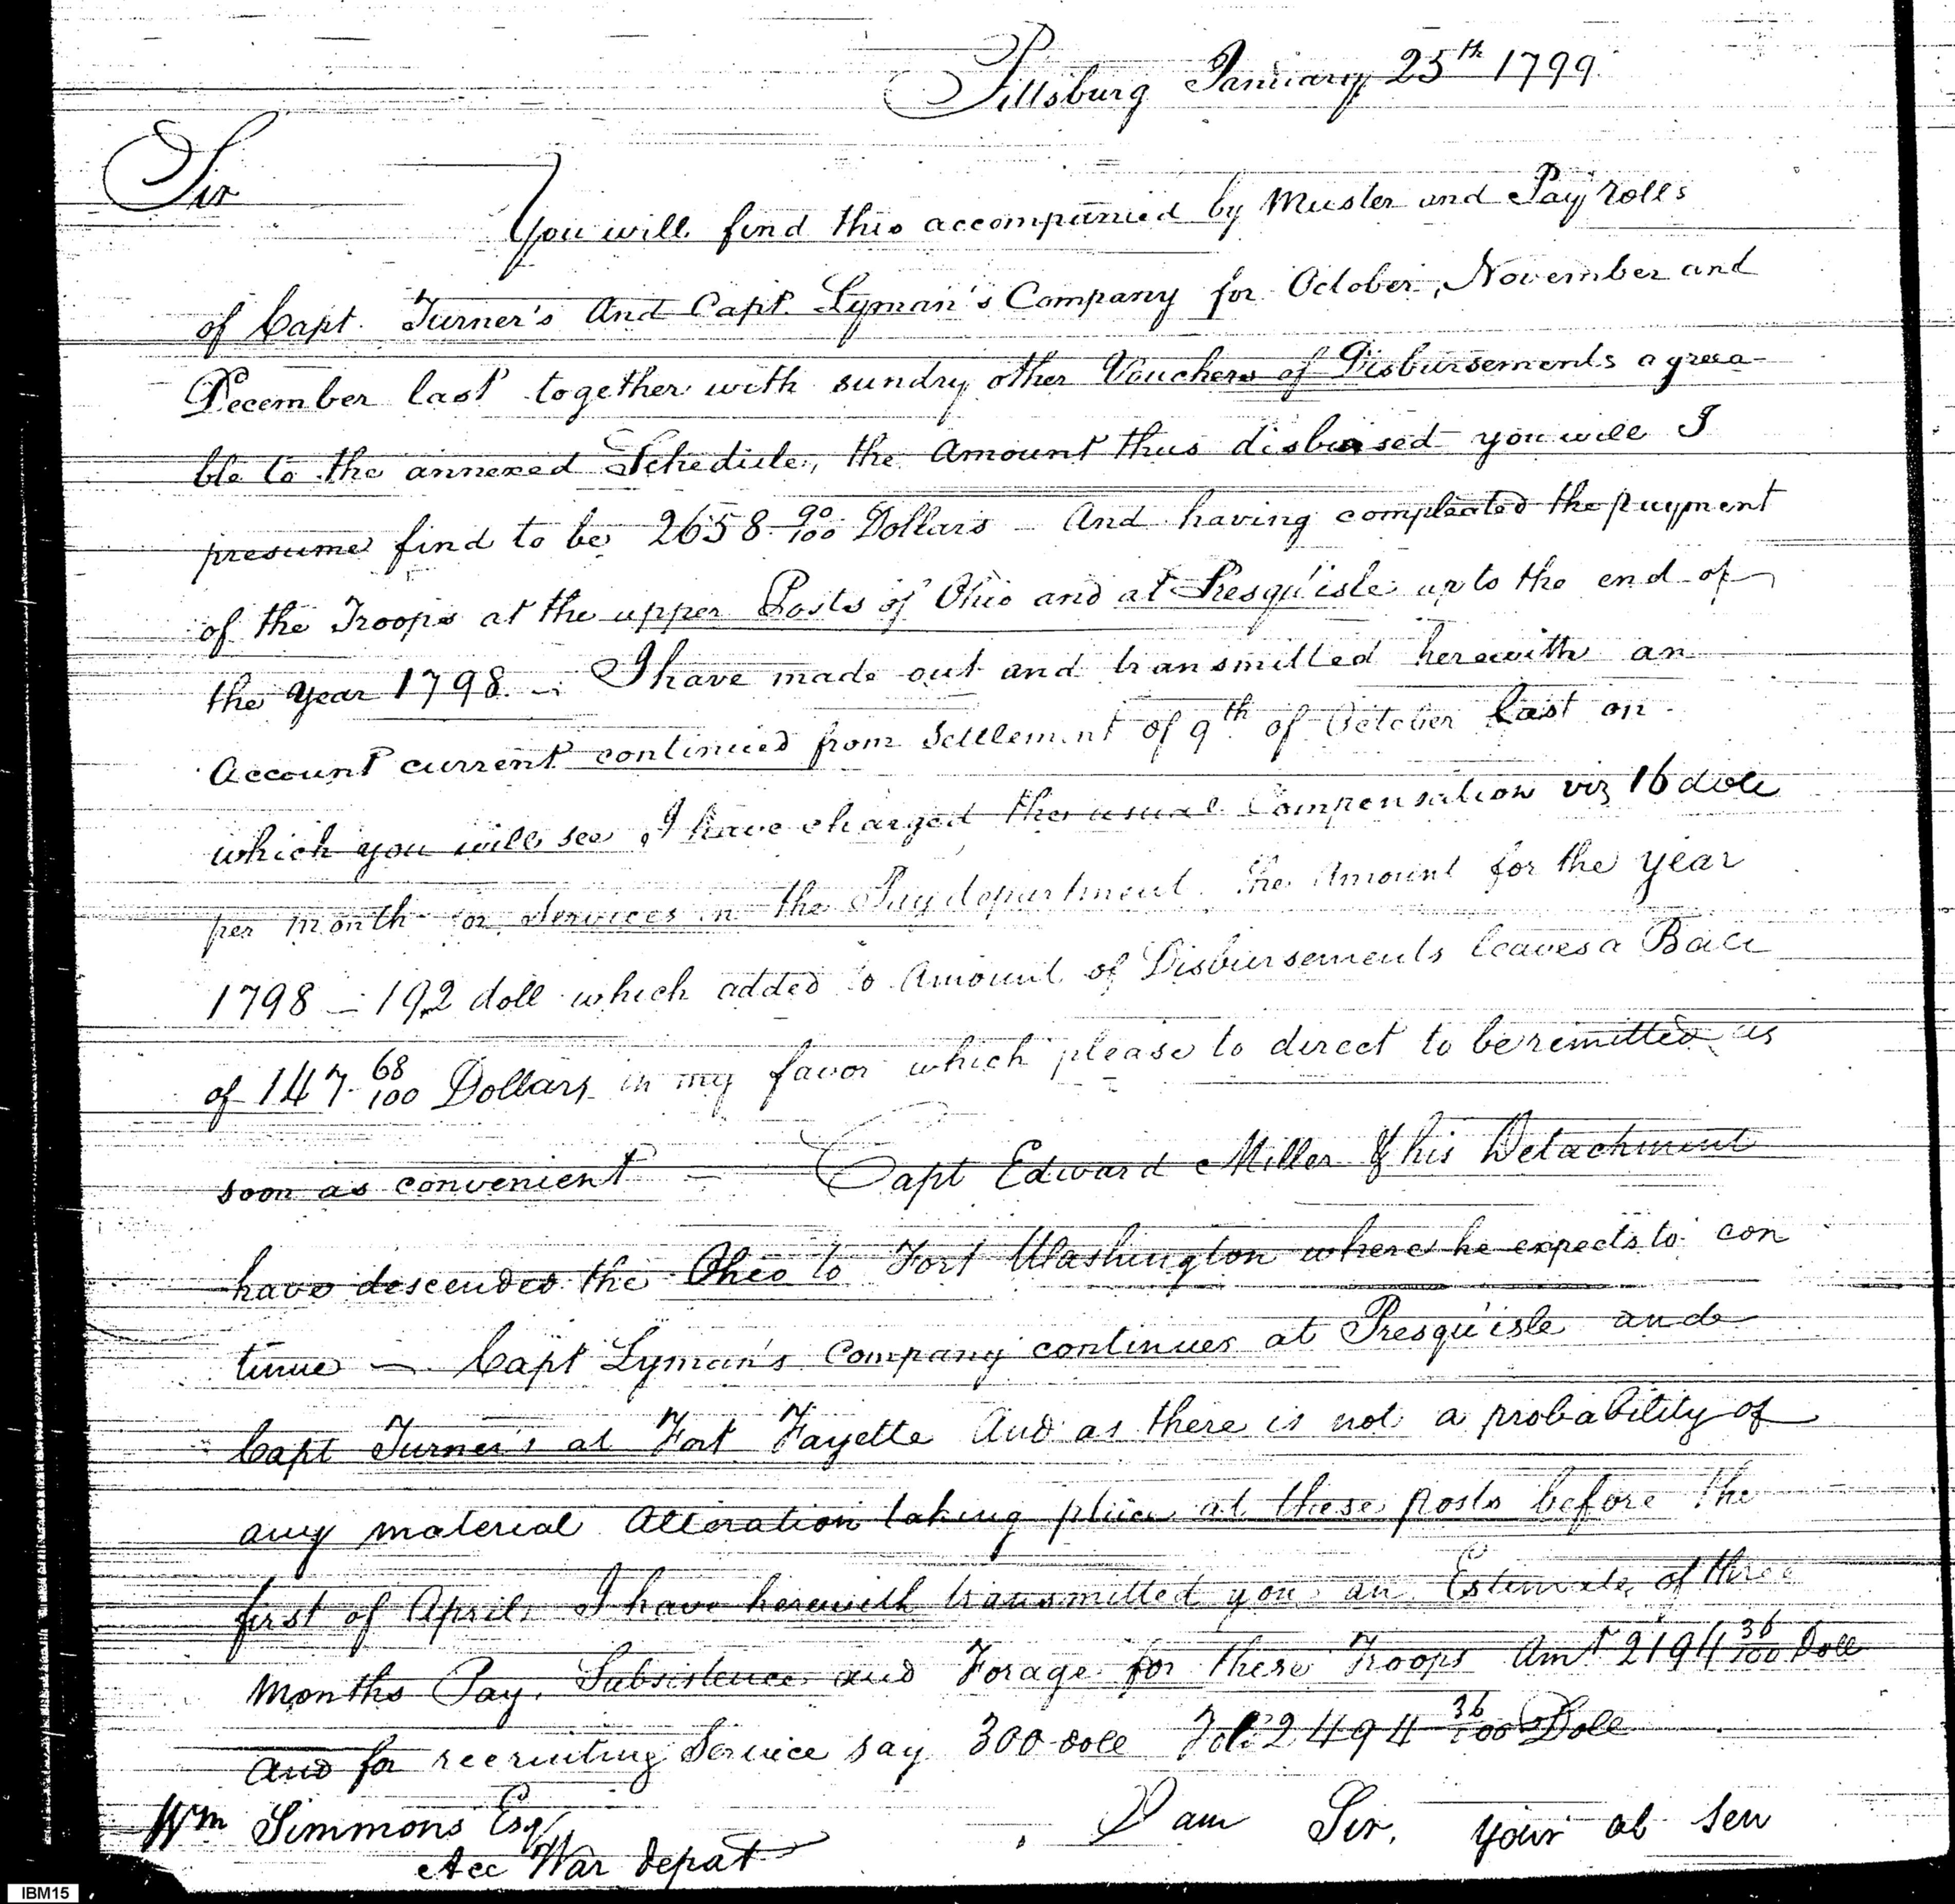 Pittsburg January 25th 1799
Sir
You will find this accompanied by Muster and Pay rolls
of Capt. Turner's And Capt. Lyman's Company for October, November and
December last together with sundry other Vouchers of Disbursements agreea-
ble to the annexed Schedule, the Amount thus disbursed you will I
presume find to be 2658 90/100 Dollars And having compleated the payment
of the Troops at the upper Posts of Ohio and at Presqu'isle up to the end of
the Year 1798. — I have made out and transmitted herewith an
Account current continued from Settlement of 9th of October last on
which you will see I have charged the usual Compensation viz 16 doll
per month for Services in the Pay department. The Amount for the year
1798 — 192 doll which added to Amount of Disbursements leaves a Bace
of 147 68/100 Dollars in my favor which please to direct to be remitted as
soon as convenient — Capt Edward Miller & his Detachment
have descended the Ohio to Fort Washington where he expects to con
tinue — Capt Lyman's Company continues at Presqu'isle and
Capt Turner's at Fort Fayette And as there is not a probability of
any material Alteration taking place at these posts before the
first of April. I have herewith transmitted you an Estimate of three
Months Pay, Subsistence and Forage for these Troops Amt 2194 36/100 Doll
And for recruiting Service say 300 doll Tol. 2494 36/100 Doll
I am Sir, your ob Sen
Wm Simmons Esqr
Acc War depat
IBM15